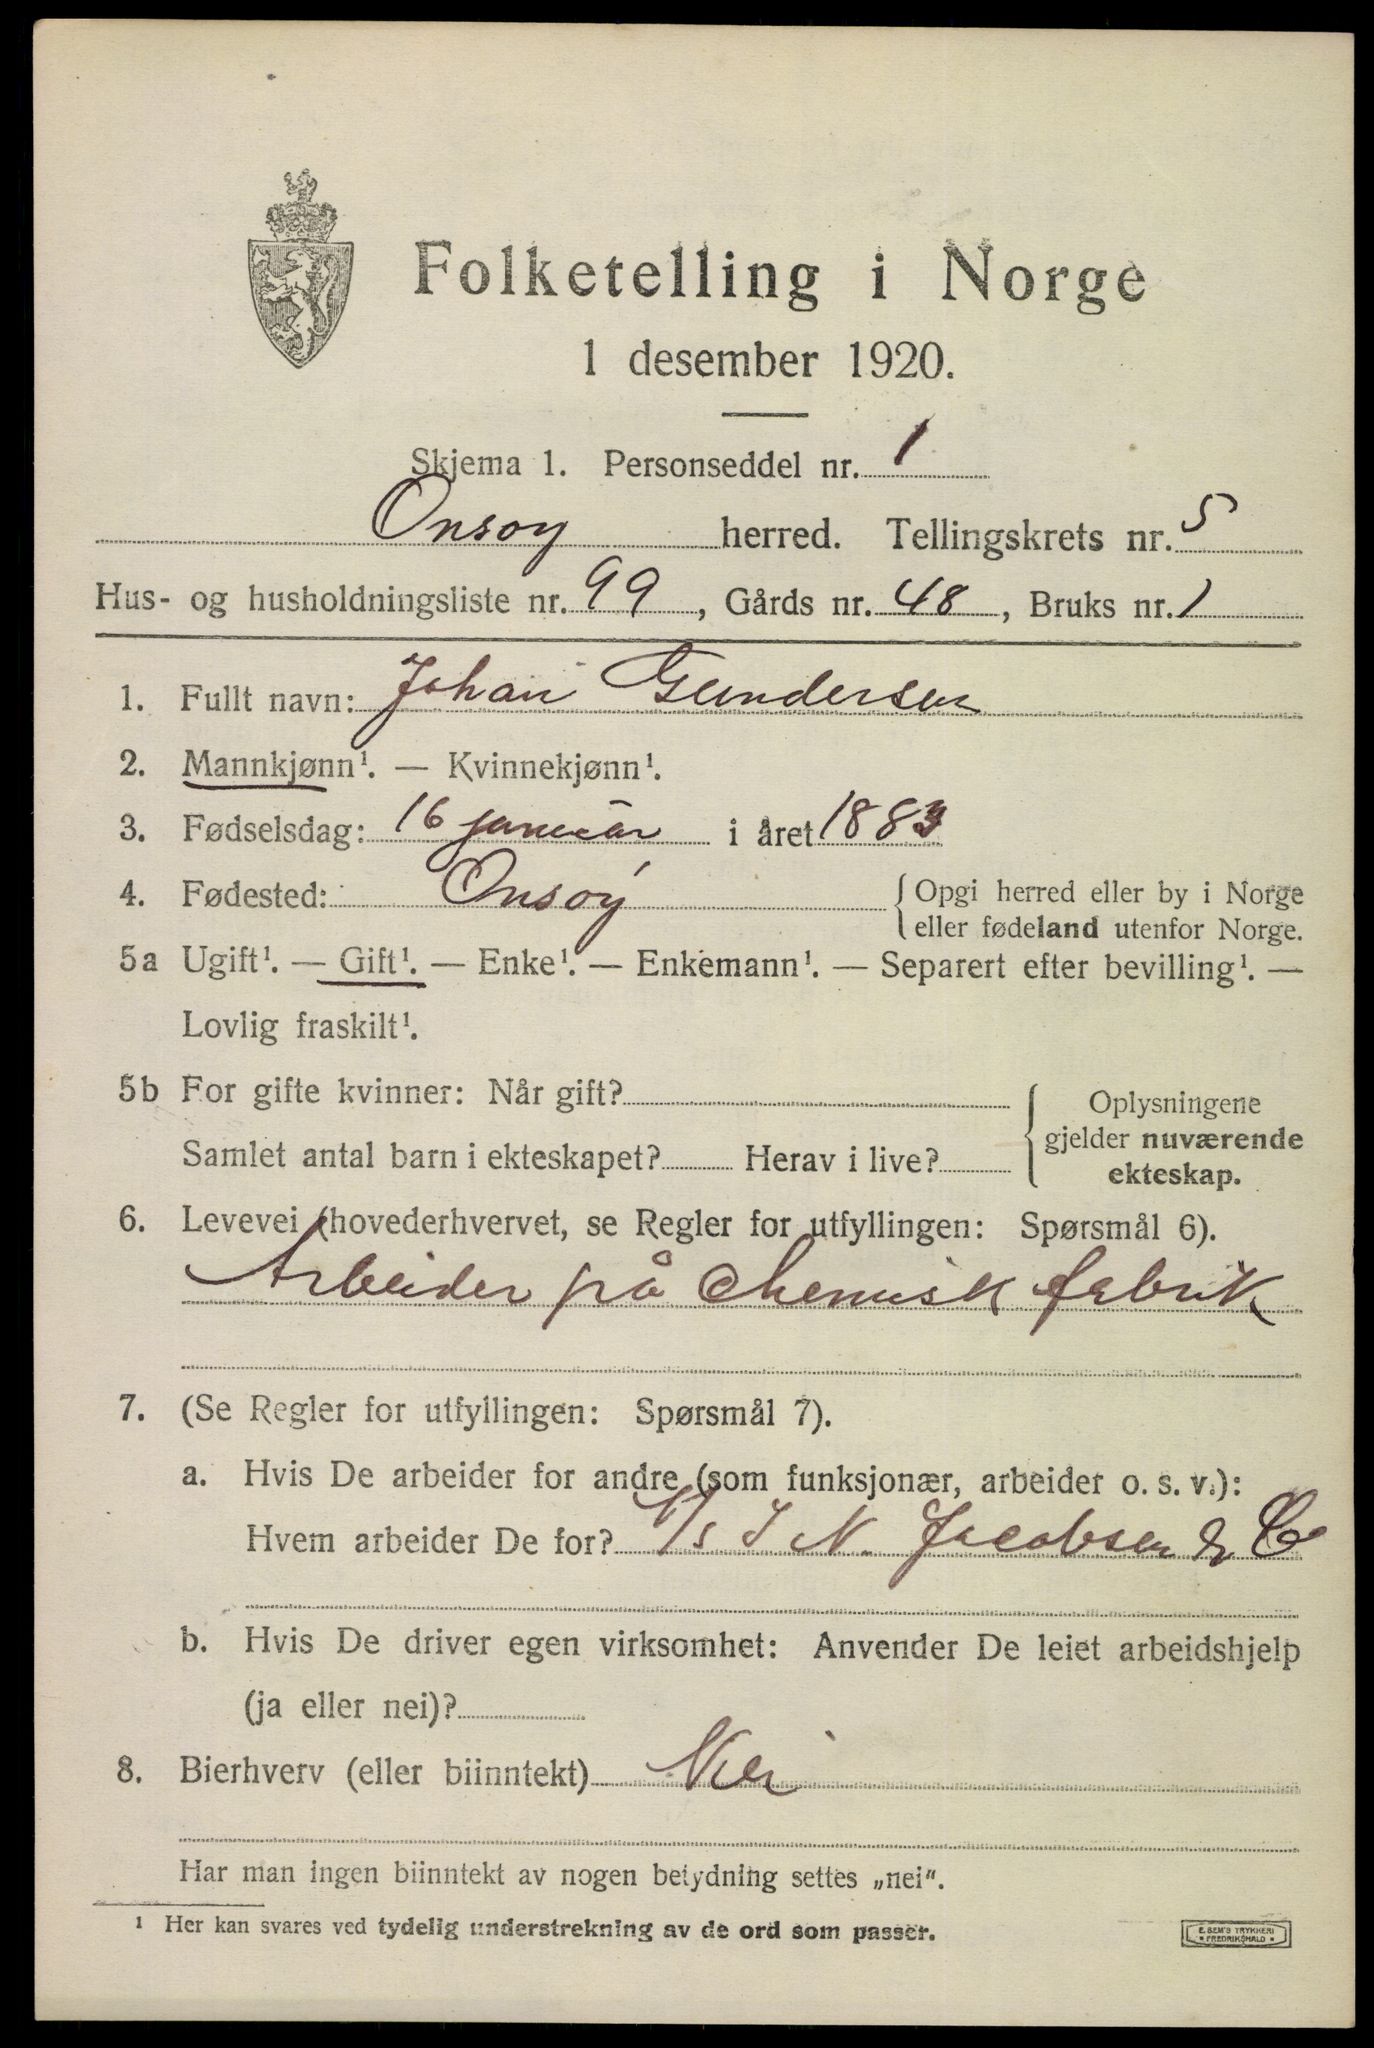 Folketelling i Norge
1 desember 1920.
Skjema 1. Personseddel nr. 1
Onsøy herred. Tellingskrets nr. 5
Hus- og husholdningsliste nr. 99, Gårds nr. 48, Bruks nr. 1
1. Fullt navn: Johan Gundersen
2. Mannkjønn¹. — Kvinnekjønn¹.
3. Fødselsdag: 16 januar i året 1883
4. Fødested: Onsøy { Opgi herred eller by i Norge
eller fødeland utenfor Norge.
5a Ugift¹. — Gift¹. — Enke¹. — Enkemann¹. — Separert efter bevilling¹. —
Lovlig fraskilt¹.
5b For gifte kvinner: Når gift?
Samlet antal barn i ekteskapet? Herav i live?
Oplysningene
gjelder nuværende
ekteskap.
6. Levevei (hovederhvervet, se Regler for utfyllingen: Spørsmål 6).
Arbeider på Chemisk fabrik
7. (Se Regler for utfyllingen: Spørsmål 7).
a. Hvis De arbeider for andre (som funksjonær, arbeider o. s. v.):
Hvem arbeider De for? A/s J N. Jacobsen & Co
b. Hvis De driver egen virksomhet: Anvender De leiet arbeidshjelp
(ja eller nei)?
8. Bierhverv (eller biinntekt) Nei
Har man ingen biinntekt av nogen betydning settes „nei“.
¹ Her kan svares ved tydelig understrekning av de ord som passer.
E. SEM'S TRYKKERI
FREDRIKSHALD